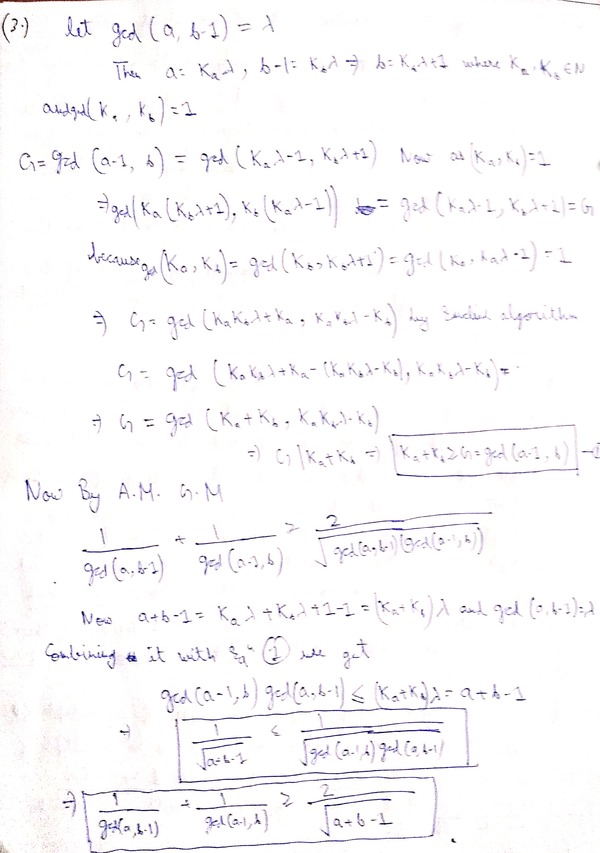 (3.) let gcd (a, b-1) = λ
Then a = Kaλ, b-1 = Kbλ ⇒ b = Kbλ+1 where Ka, Kb ∈ N
and gcd(Ka, Kb) = 1
G = gcd (a-1, b) = gcd (Kaλ-1, Kbλ+1) Now as (Ka, Kb) = 1
⇒ gcd(Ka(Kbλ+1), Kb(Kaλ-1)) = gcd (Kaλ-1, Kbλ+1) = G
because gcd(Ka, Kb) = gcd (Kb, Kbλ+1) = gcd (Ka, Kaλ-1) = 1
⇒ G = gcd (KaKbλ+Ka, KaKbλ-Kb) by algorithm
G = gcd (KaKbλ+Ka-(KaKbλ-Kb), KaKbλ-Kb) =
⇒ G = gcd (Ka+Kb, KaKbλ-Kb)
⇒ G | Ka+Kb ⇒ Ka+Kb ≥ G = gcd (a-1, b) —①
Now By A.M. G.M
1/gcd(a, b-1) + 1/gcd(a-1, b) ≥ 2/√(gcd(a, b-1)(gcd(a-1, b)))
Now a+b-1 = Kaλ+Kbλ+1-1 = (Ka+Kb)λ and gcd (a, b-1) = λ
Combining it with Eqⁿ ① we get
gcd(a-1, b) gcd(a, b-1) ≤ (Ka+Kb)λ = a+b-1
⇒ 1/√(a+b-1) ≤ 1/√(gcd(a-1, b) gcd(a, b-1))
⇒ 1/gcd(a, b-1) + 1/gcd(a-1, b) ≥ 2/√(a+b-1)